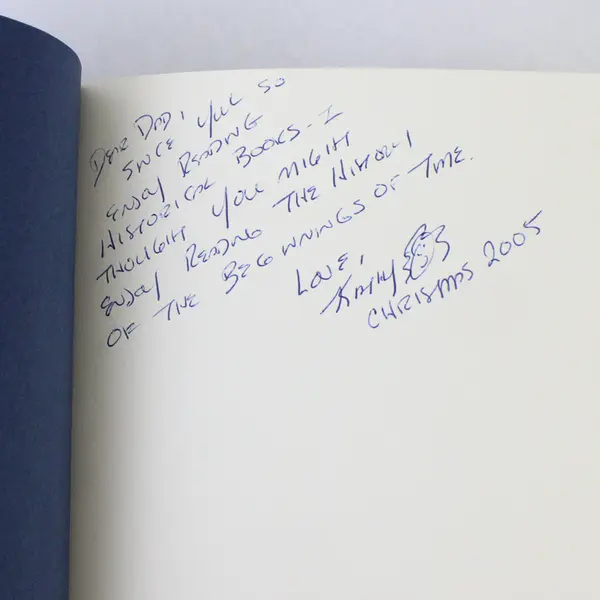 DEAR DAD,
SINCE YOU SO
ENJOY READING
HISTORICAL BOOKS - I
THOUGHT YOU MIGHT
ENJOY READING THE HISTORY
OF THE BEGINNINGS OF TIME.
LOVE,
KATHY
CHRISTMAS 2005